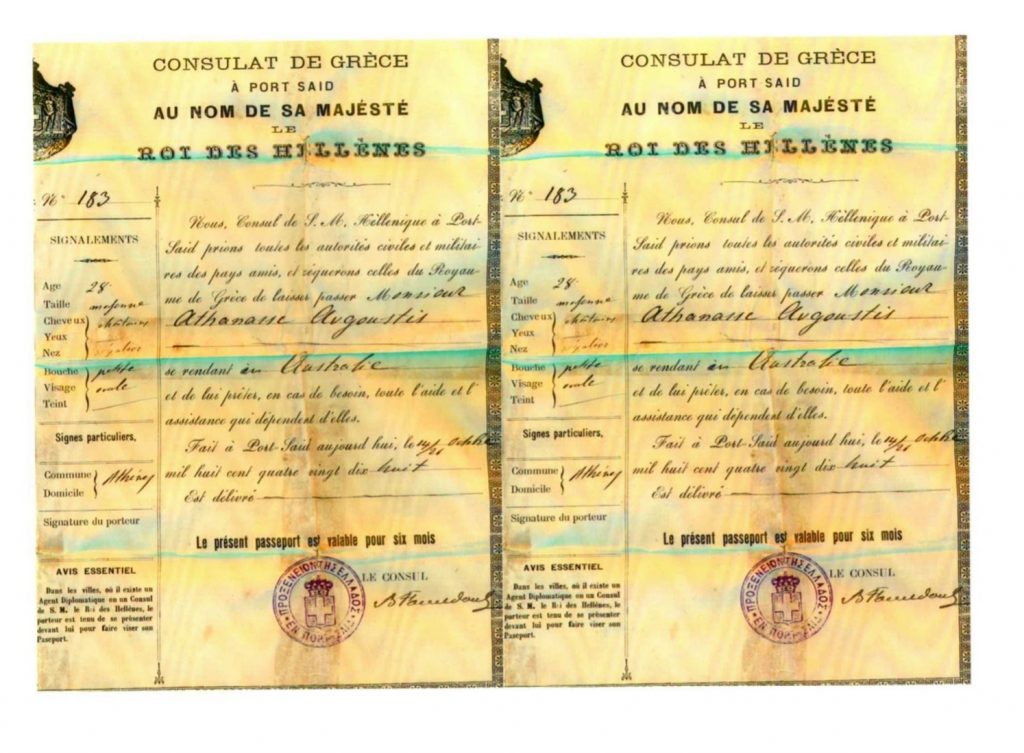 CONSULAT DE GRÈCE
À PORT SAID
AU NOM DE SA MAJÉSTÉ
LE
ROI DES HELLÈNES
N° 183
SIGNALEMENTS
Age 28
Taille moyenne
Cheveux
Yeux
Nez
Bouche petite
Visage ovale
Teint
Signes particuliers,
Commune Athènes
Domicile
Signature du porteur
AVIS ESSENTIEL
Dans les villes, où il existe un
Agent Diplomatique ou un Consul
de S. M. le Roi des Hellènes, le
porteur est tenu de se présenter
devant lui pour faire viser son
Passeport.
Nous, Consul de S. M. Hèllenique à Port-
Said prions toutes les autorités civiles et militai-
res des pays amis, et réquerons celles du Royau-
me de Grèce de laisser passer Monsieur
Athanasse Avgoustis
se rendant en Australie
et de lui prêter, en cas de besoin, toute l'aide et l'
assistance qui dépendent d'elles.
Fait à Port-Said aujourd hui, le 14/26 Octobre
mil huit cent quatre vingt dix huit
Est délivré
Le présent passeport est valable pour six mois
LE CONSUL
ΠΡΟΞΕΝΕΙΟΝ ΤΗΣ ΕΛΛΑΔΟΣ
ΕΝ ΠΟΡΤ ΣΑΪΔ
CONSULAT DE GRÈCE
À PORT SAID
AU NOM DE SA MAJÉSTÉ
LE
ROI DES HELLÈNES
N° 183
SIGNALEMENTS
Age 28
Taille moyenne
Cheveux
Yeux
Nez
Bouche petite
Visage ovale
Teint
Signes particuliers,
Commune Athènes
Domicile
Signature du porteur
AVIS ESSENTIEL
Dans les villes, où il existe un
Agent Diplomatique ou un Consul
de S. M. le Roi des Hellènes, le
porteur est tenu de se présenter
devant lui pour faire viser son
Passeport.
Nous, Consul de S. M. Hèllenique à Port-
Said prions toutes les autorités civiles et militai-
res des pays amis, et réquerons celles du Royau-
me de Grèce de laisser passer Monsieur
Athanasse Avgoustis
se rendant en Australie
et de lui prêter, en cas de besoin, toute l'aide et l'
assistance qui dépendent d'elles.
Fait à Port-Said aujourd hui, le 14/26 Octobre
mil huit cent quatre vingt dix huit
Est délivré
Le présent passeport est valable pour six mois
LE CONSUL
ΠΡΟΞΕΝΕΙΟΝ ΤΗΣ ΕΛΛΑΔΟΣ
ΕΝ ΠΟΡΤ ΣΑΪΔ